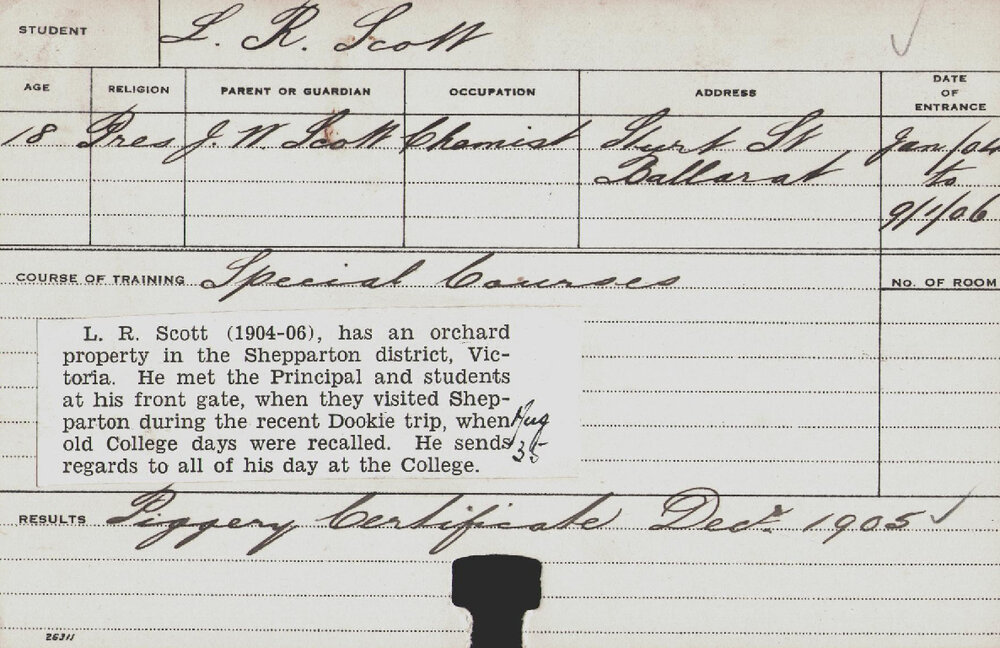 STUDENT L. R. Scott
AGE RELIGION PARENT OR GUARDIAN OCCUPATION ADDRESS DATE OF ENTRANCE
18 Pres J. W Scott Chemist Sturt St Jan/04
Ballarat to
9/1/06
COURSE OF TRAINING Special Courses No. OF ROOM
L. R. Scott (1904-06), has an orchard
property in the Shepparton district, Vic-
toria. He met the Principal and students
at his front gate, when they visited Shep-
parton during the recent Dookie trip, when Aug
old College days were recalled. He sends 35
regards to all of his day at the College.
RESULTS Piggery Certificate Decr. 1905
26311